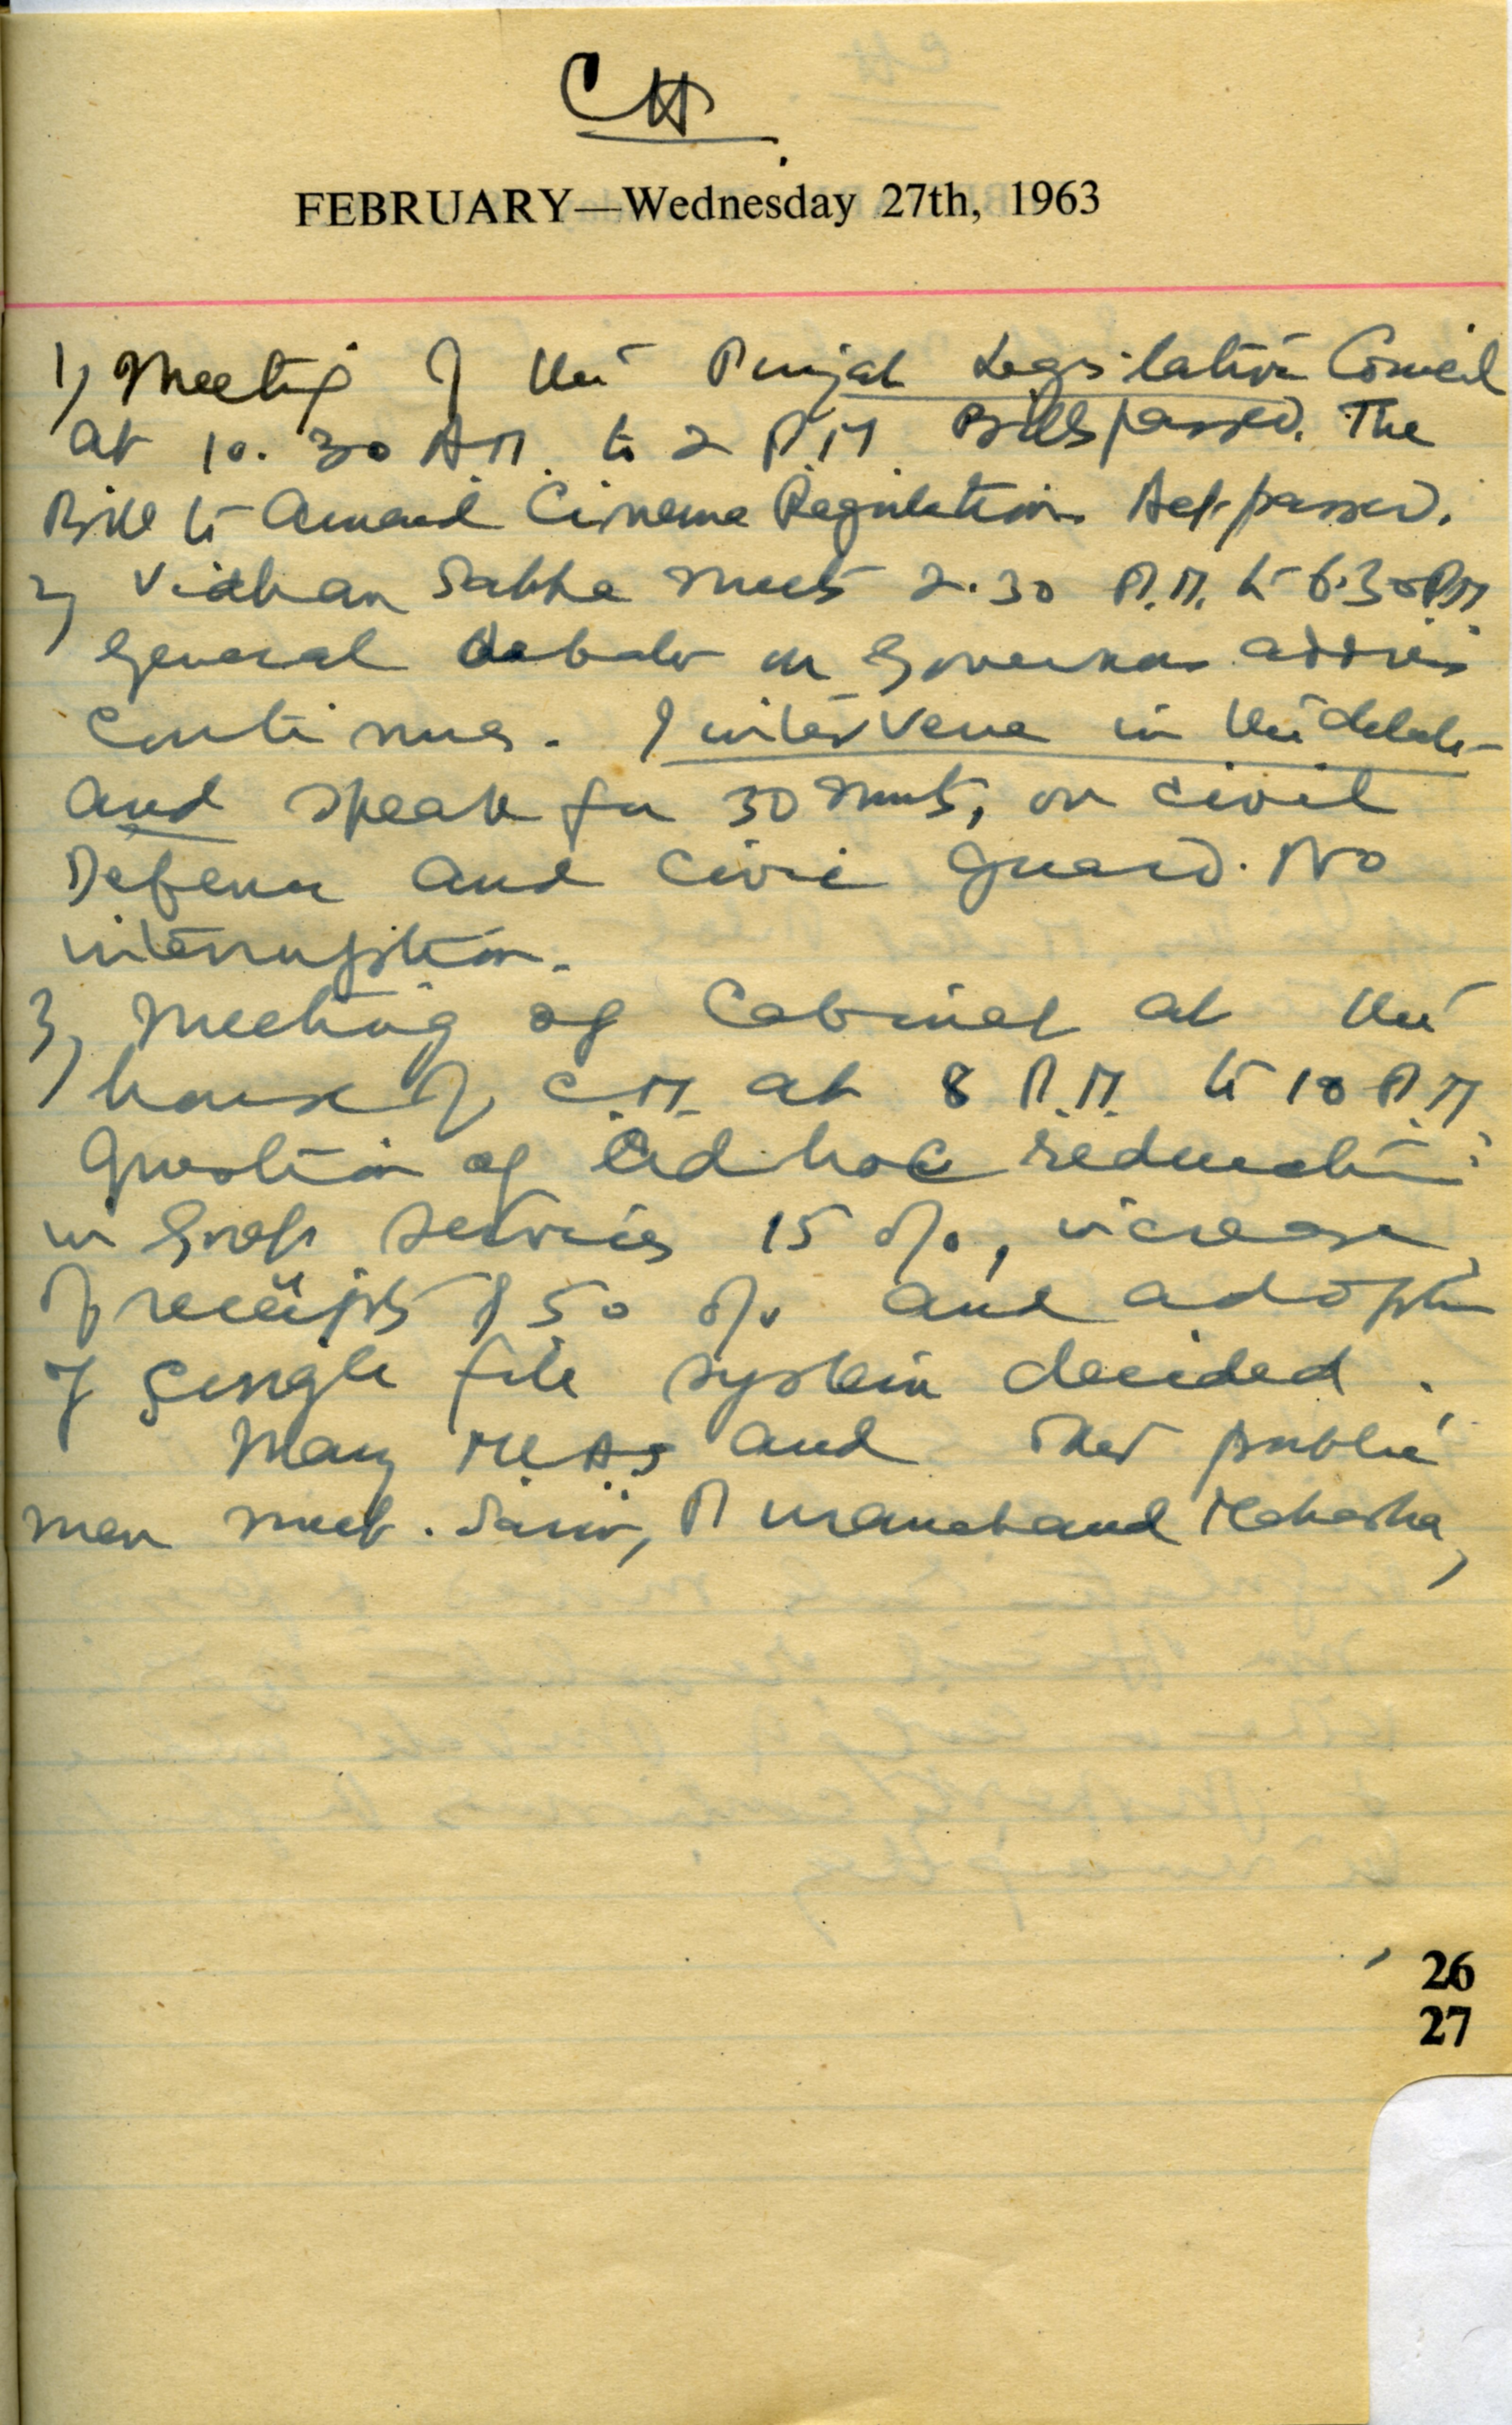 CH.
FEBRUARY—Wednesday 27th, 1963
1) Meeting of the Punjab Legislative Council
at 10.30 A.M. to 2 P.M. Bills passed. The
Bill to Amend Cinema Regulation Act passed.
2) Vidhan Sabha meets 2.30 P.M. to 6.30 P.M.
General debate on Governors address
continues. I intervene in the debate
and speak for 30 mnts, on civil
Defence and civic guard. No
interruption.
3) Meeting of Cabinet at the
house of C.M. at 8 P.M. to 10 P.M.
Question of Ad hoc reduction
in Govt services 15 %, increase
of receipts of 50 % and adoption
of single file system decided.
Many M.L.A.s and other public
men meet.
26
27